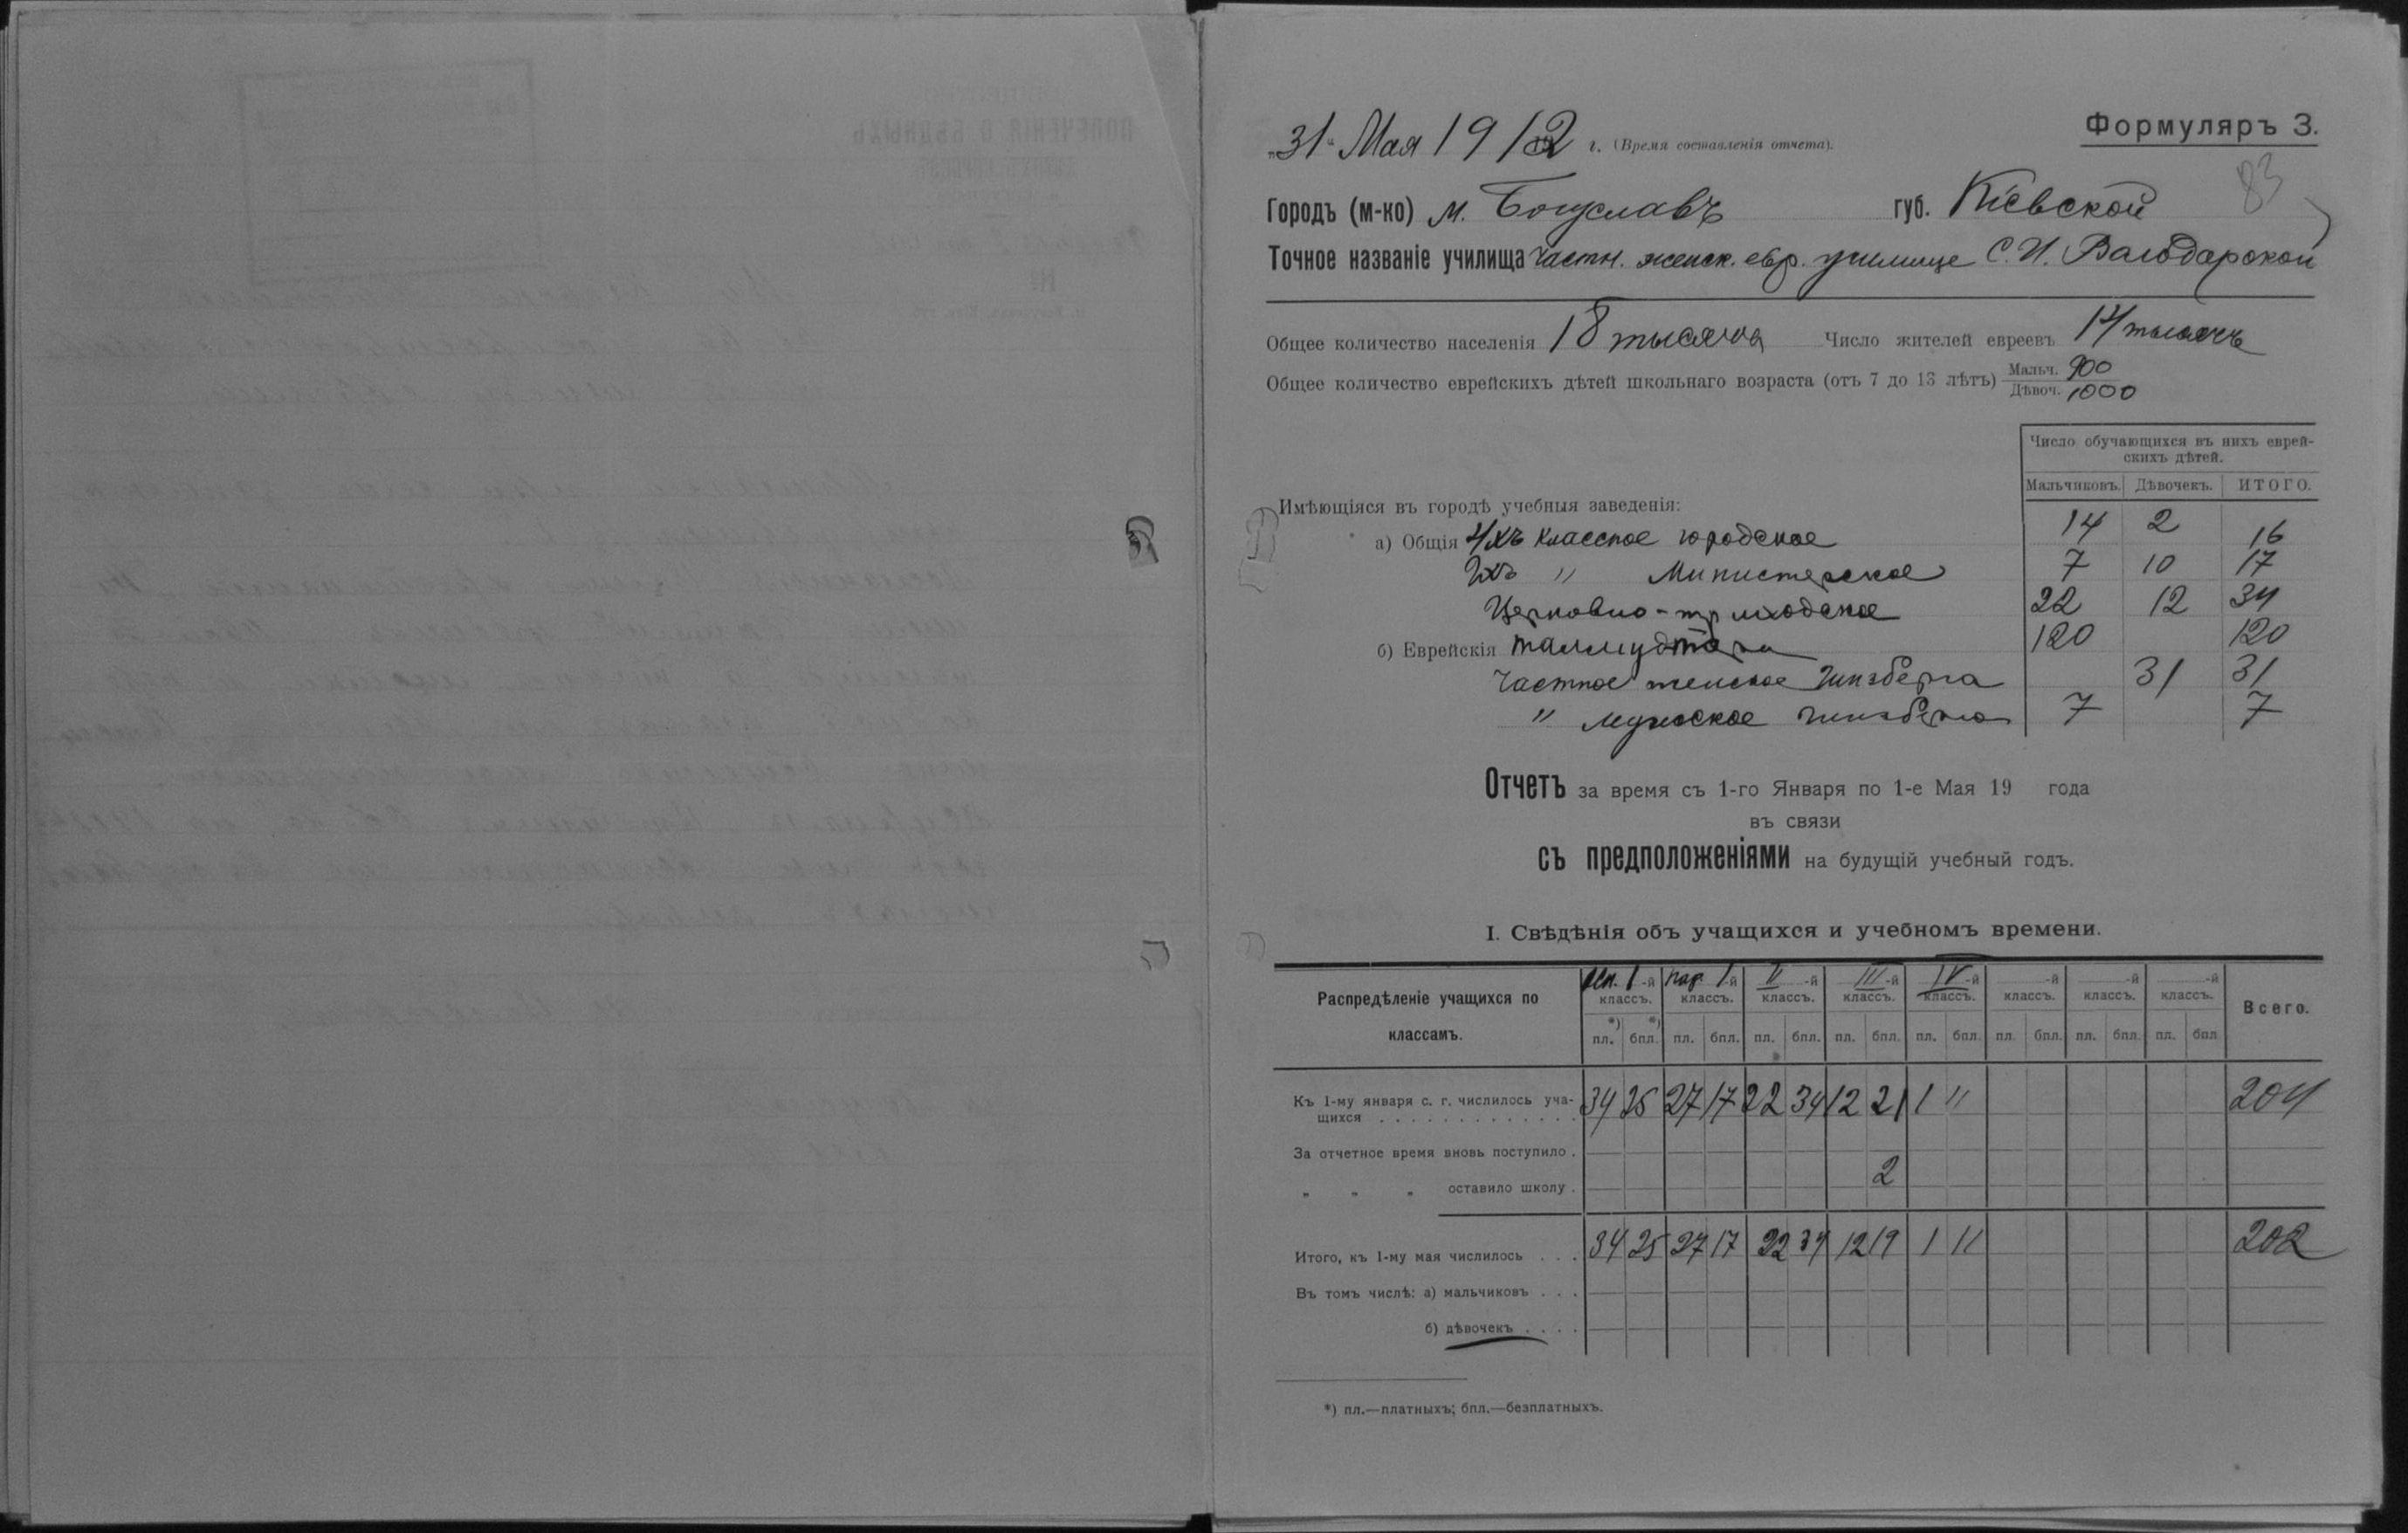 Формуляръ 3.
„31“ Мая 1912 г. (Время составленія отчета).
83
Городъ (м-ко) м. Богуславъ губ. Кіевской
Точное названіе училища Частн. женск. евр. училище С. И. Валодарской
Общее количество населенія 18 тысячъ Число жителей евреевъ 14 тысячъ
Общее количество еврейскихъ дѣтей школьнаго возраста (отъ 7 до 13 лѣтъ) Мальч. 900
Дѣвоч. 1000
Число обучающихся въ нихъ еврей-
скихъ дѣтей.
Мальчиковъ. Дѣвочекъ. ИТОГО.
Имѣющіяся въ городѣ учебныя заведенія:
а) Общія 4хъ классное городское 14 2 16
2хъ " Министерское 7 10 17
Церковно-приходское 22 12 34
б) Еврейскія Талмудтора 120 120
Частное женское Гинзберга 31 31
" мужское Гинзберга 7 7
Отчетъ за время съ 1-го Января по 1-е Мая 19 года
въ связи
съ предположеніями на будущій учебный годъ.
I. Свѣдѣнія объ учащихся и учебномъ времени.
Распредѣленіе учащихся по классамъ.
I-й классъ. I-й классъ. II-й классъ. III-й классъ. IV-й классъ. -й классъ. -й классъ. -й классъ. Всего.
*) *)
пл. бпл. пл. бпл. пл. бпл. пл. бпл. пл. бпл. пл. бпл. пл. бпл. пл. бпл.
Къ 1-му января с. г. числилось уча-
щихся . . . . . . . . . . . . . 34 25 27 17 22 34 12 21 1 " 204
За отчетное время вновь поступило .
„ „ „ оставило школу . 2
Итого, къ 1-му мая числилось . . . 34 25 27 17 22 34 12 19 1 " 202
Въ томъ числѣ: а) мальчиковъ . . .
б) дѣвочекъ . . . .
*) пл.—платныхъ; бпл.—безплатныхъ.